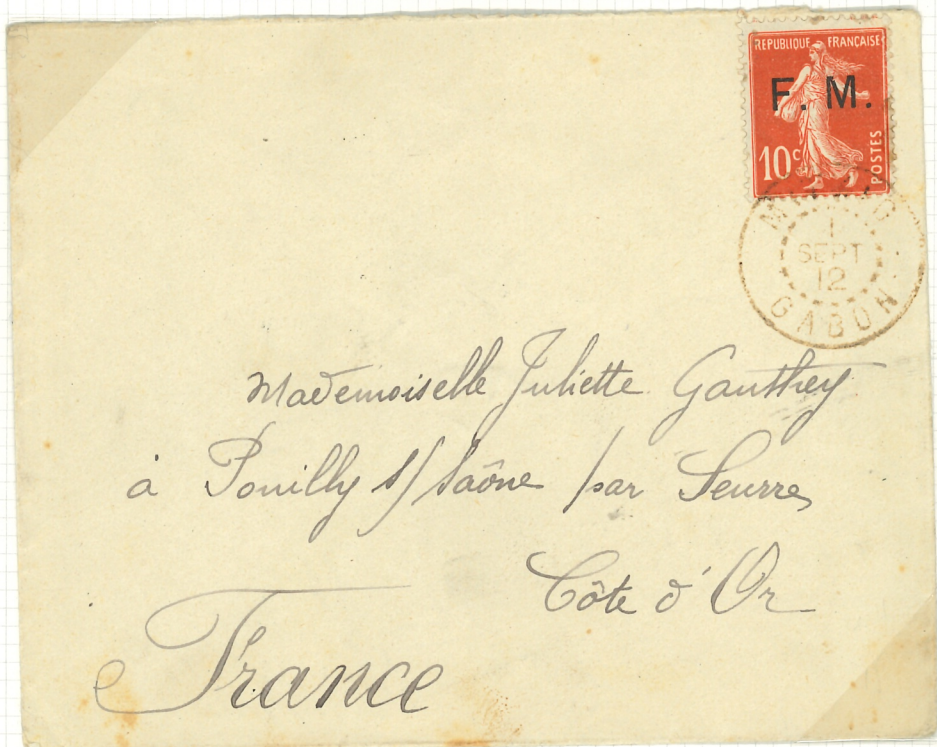 REPUBLIQUE FRANÇAISE
F. M.
10c
POSTES
1
SEPT
12
GABON
Mademoiselle Juliette Gauthey
à Pouilly s/ Saône par Seurre
Côte d'Or
France